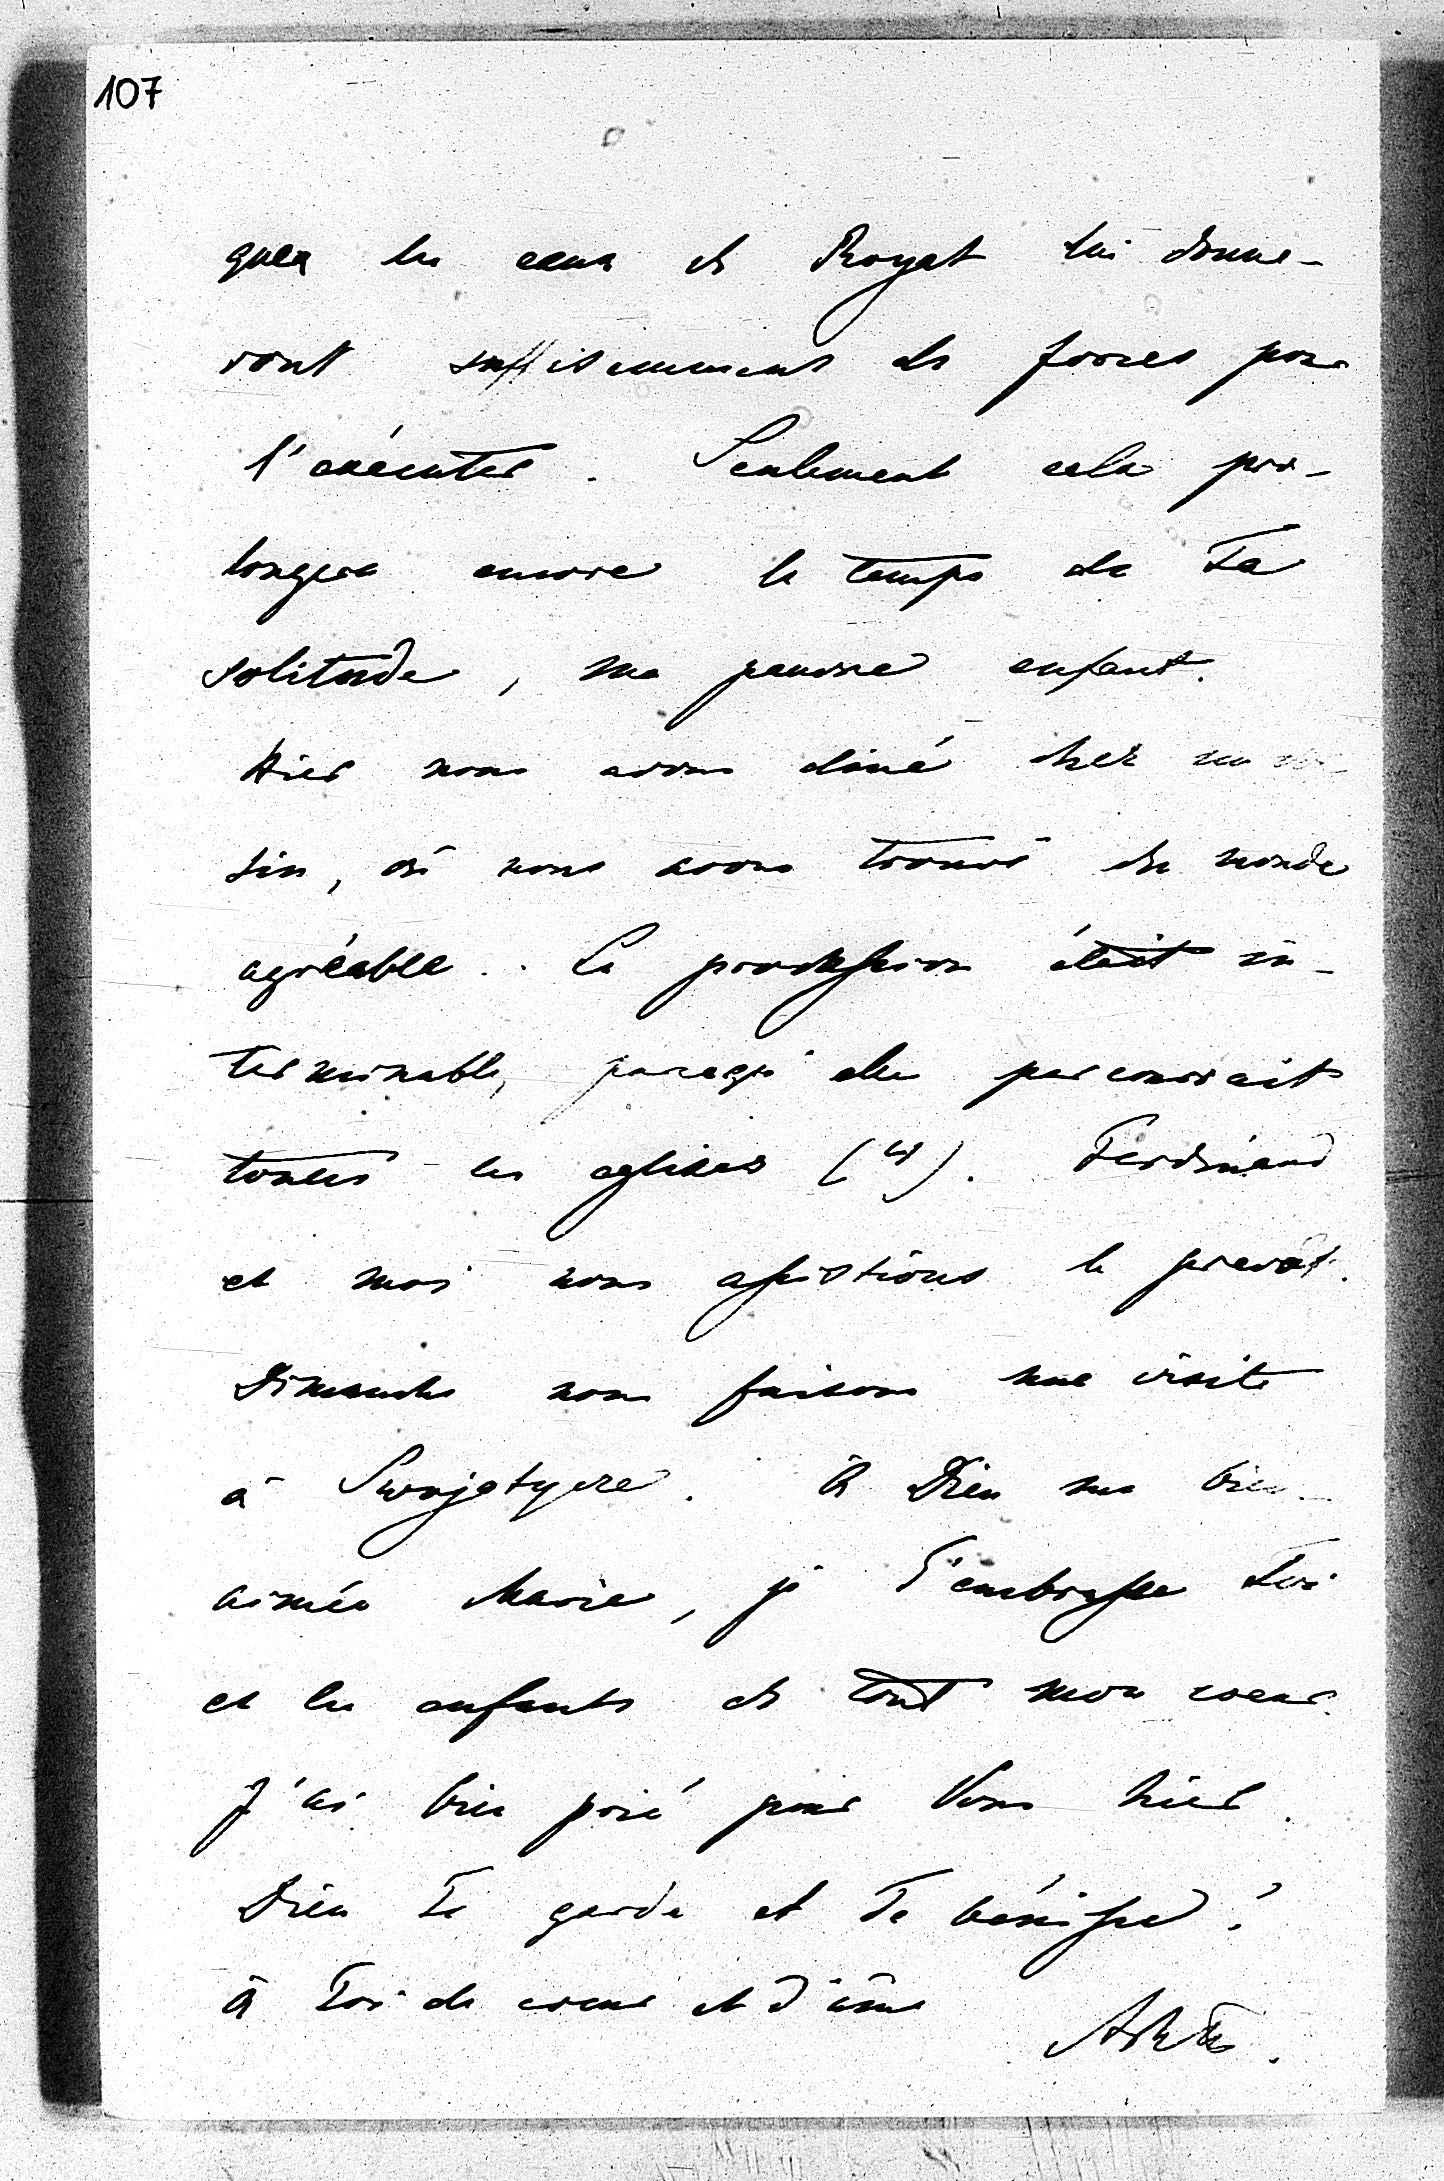 107
que les eaux de Royat lui donne-
ront suffisamment de forces pour
l'exécuter. Seulement cela pro-
longera encore le temps de Ta
solitude, ma pauvre enfant.
Hier nous avons diné chez un voi-
sin, où nous avons trouvé du monde
agréable. La procession était in-
terminable, parceqe elle parcourait
toutes les eglises (4). Ferdinand
et moi nous assistions le prevôt.
Dimanche nous faisons une visite
à Swojetycze. À Dieu ma bien-
aimée Marie, je T'embrasse Toi
et les enfants de tout mon coeur.
J'ai bien prié pour Vous hier.
Dieu Te garde et Te bénisse!
à Toi de coeur et d'âme